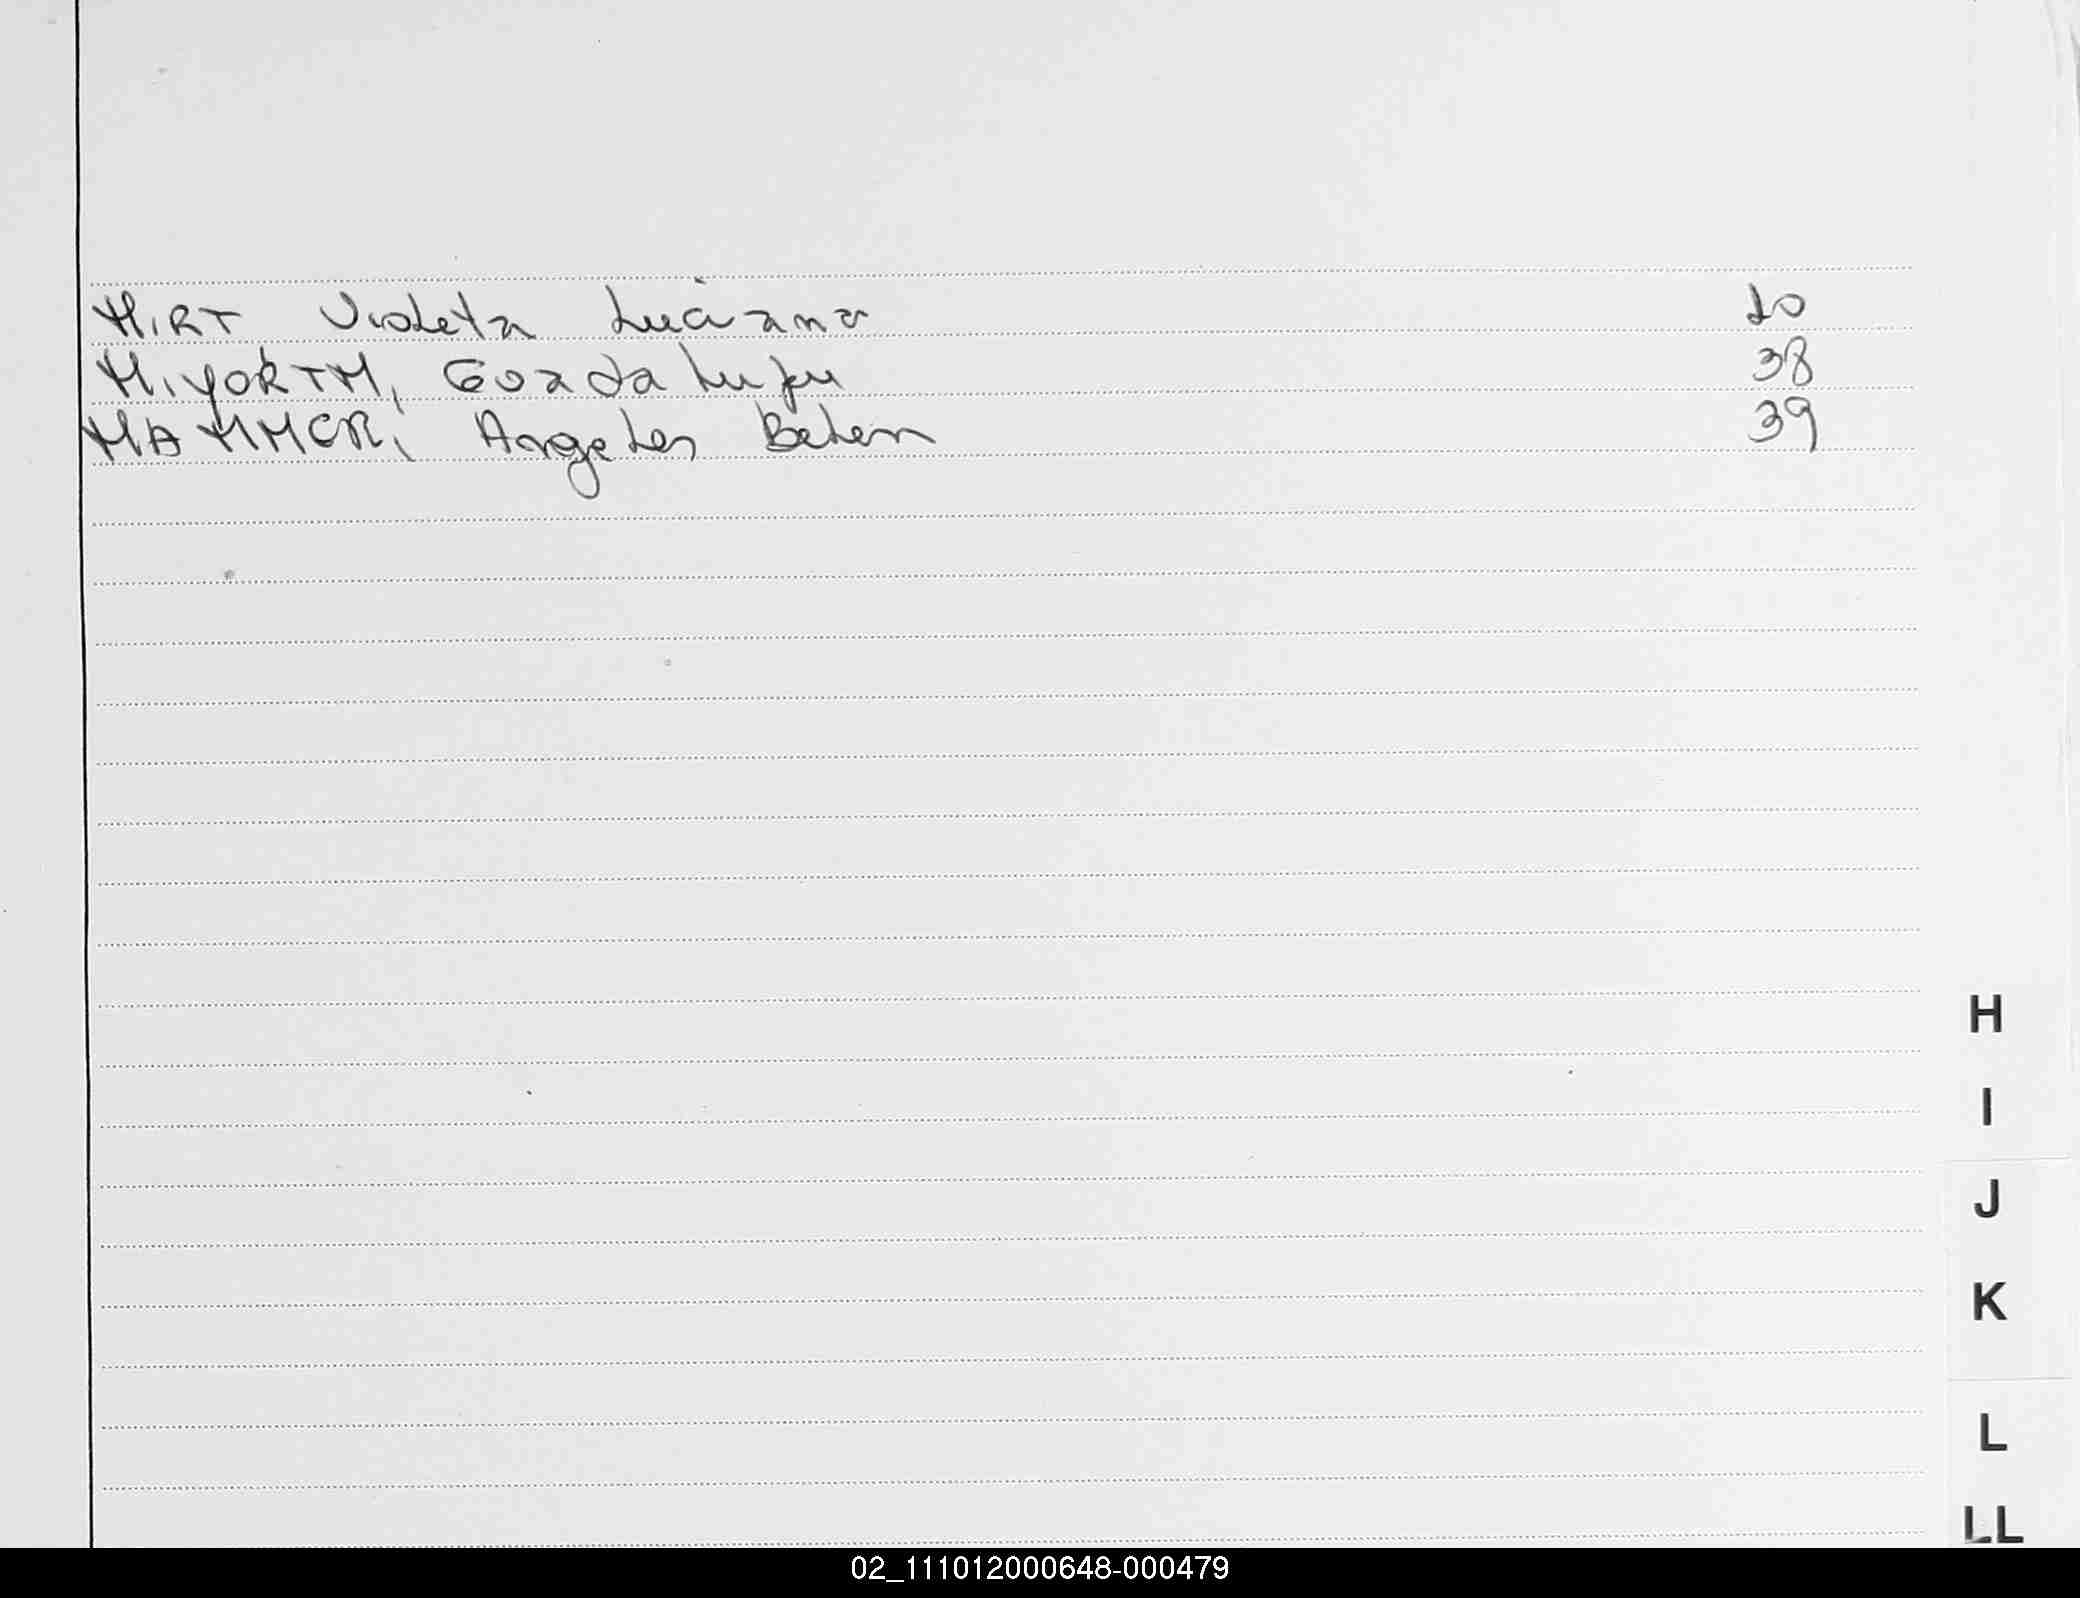 HIRT Violeta Luciana 10
HiyoRTH, Guadalupe 38
HAMMER, Angeles Belen 39
H
I
J
K
L
LL
02_111012000648-000479